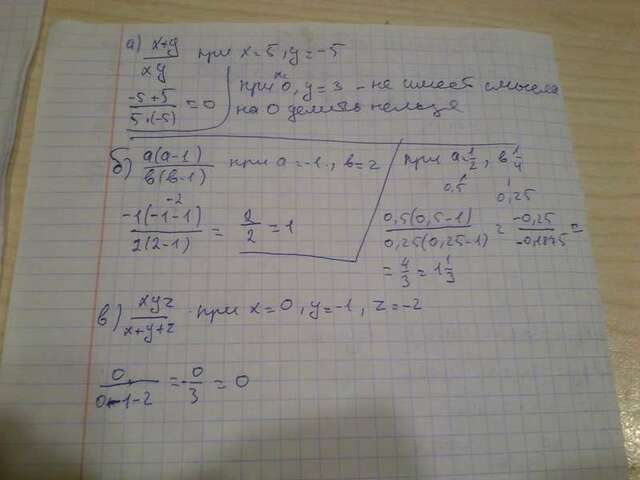 а) x+y / xy при x=5, y=-5
-5+5 / 5·(-5) = 0
при x=0, y=3 - не имеет смысла
на 0 делить нельзя
б) a(a-1) / в(в-1) при a=-1, в=2
-2
-1(-1-1) / 2(2-1) = 2/2 = 1
при a=1/2, в 1/4
0,5 0,25
0,5(0,5-1) / 0,25(0,25-1) = -0,25 / -0,1875 =
= 4/3 = 1 1/3
в) xyz / x+y+z при x=0, y=-1, z=-2
0 / 0-1-2 = -0/3 = 0